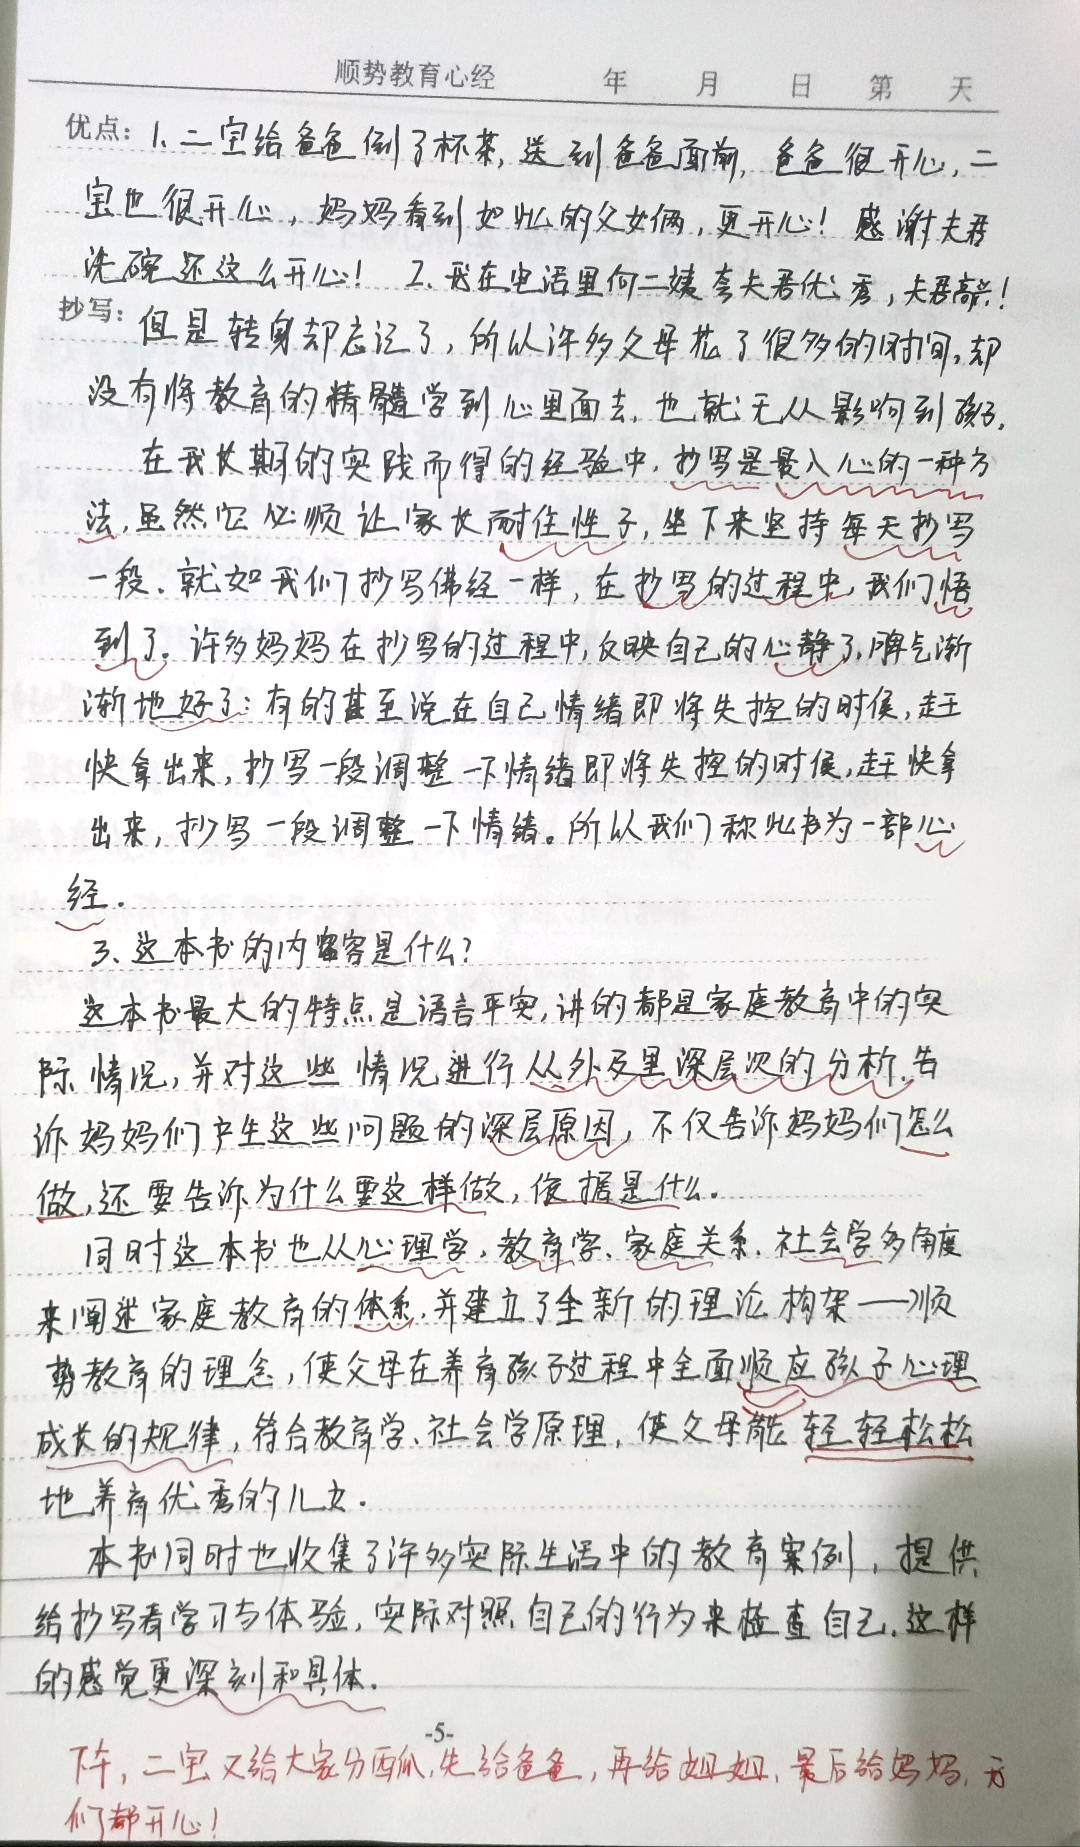 顺势教育心经 年 月 日 第 天
优点: 1、二宝给爸爸倒了杯茶,送到爸爸面前,爸爸很开心,二
宝也很开心,妈妈看到如此的父女俩,更开心!感谢夫君
洗碗还这么开心! 2、我在电话里向二姨夸夫君优秀,夫君高兴!
抄写: 但是转身却忘记了,所以许多父母花了很多的时间,却
没有将教育的精髓学到心里面去,也就无从影响到孩子。
在我长期的实践而得的经验中,抄写是最入心的一种方
法,虽然它必须让家长耐住性子,坐下来坚持每天抄写
一段、就如我们抄写佛经一样,在抄写的过程中,我们悟
到了。许多妈妈在抄写的过程中,反映自己的心静了,脾气渐
渐地好了;有的甚至说在自己情绪即将失控的时候,赶
快拿出来,抄写一段调整一下情绪即将失控的时候,赶快拿
出来,抄写一段调整一下情绪。所以我们称此书为一部心
经。
3、这本书的内容是什么?
这本书最大的特点是语言平实,讲的都是家庭教育中的实
际情况,并对这些情况进行从外及里深层次的分析,告
诉妈妈们产生这些问题的深层原因,不仅告诉妈妈们怎么
做,还要告诉为什么要这样做,依据是什么。
同时这本书也从心理学、教育学、家庭关系、社会学多角度
来阐述家庭教育的体系,并建立了全新的理论构架——顺
势教育的理念,使父母在养育孩子过程中全面顺应孩子心理
成长的规律,符合教育学、社会学原理,使父母能轻轻松松
地养育优秀的儿女。
本书同时也收集了许多实际生活中的教育案例,提供
给抄写者学习与体验,实际对照自己的行为来检查自己,这样
的感觉更深刻和具体。
-5-
下午,二宝又给大家分西瓜,先给爸爸,再给姐姐,最后给妈妈,我
们都开心!